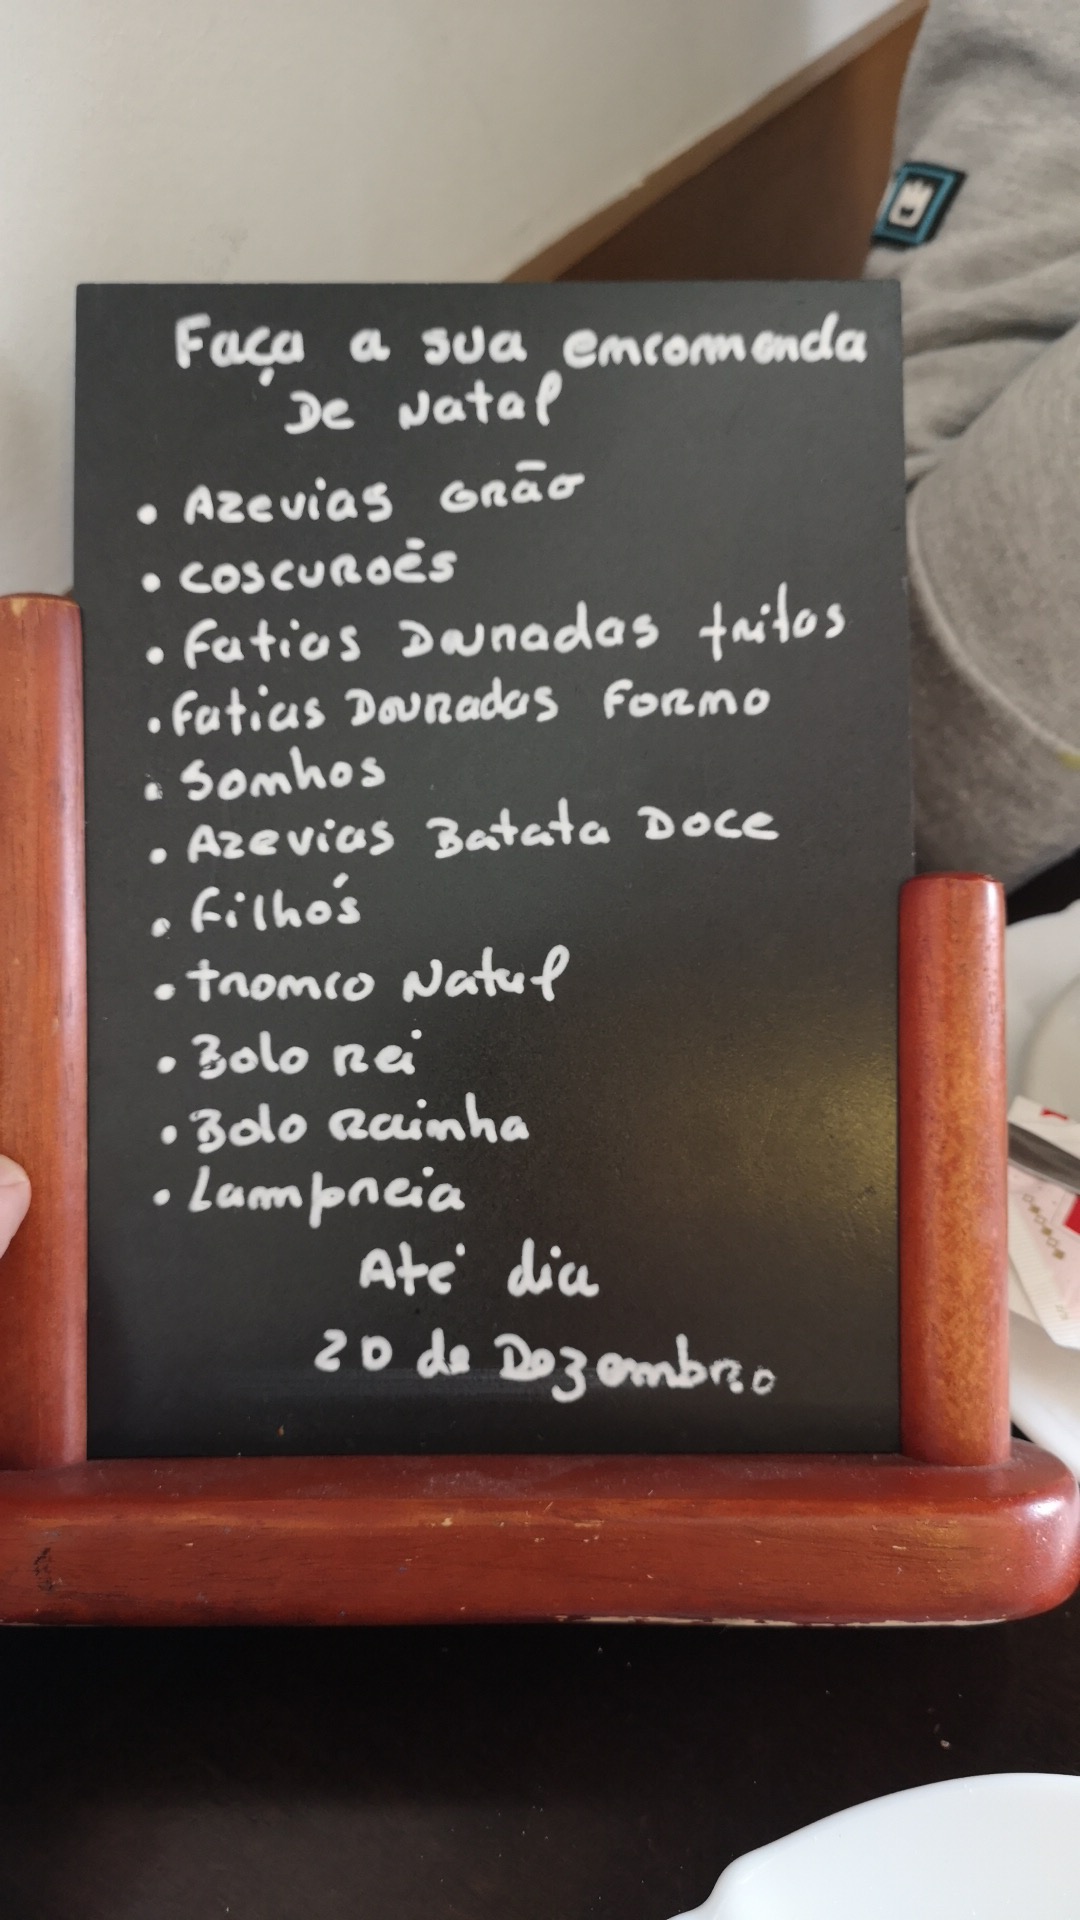 Faça a sua encomenda
De Natal
• Azevias Grão
• COSCUROÊS
• Fatias Douradas fritas
• Fatias Douradas Forno
• Sonhos
• Azevias Batata Doce
• Filhós
• tronco Natal
• Bolo Rei
• Bolo Rainha
• Lampreia
Até dia
20 de Dezembro